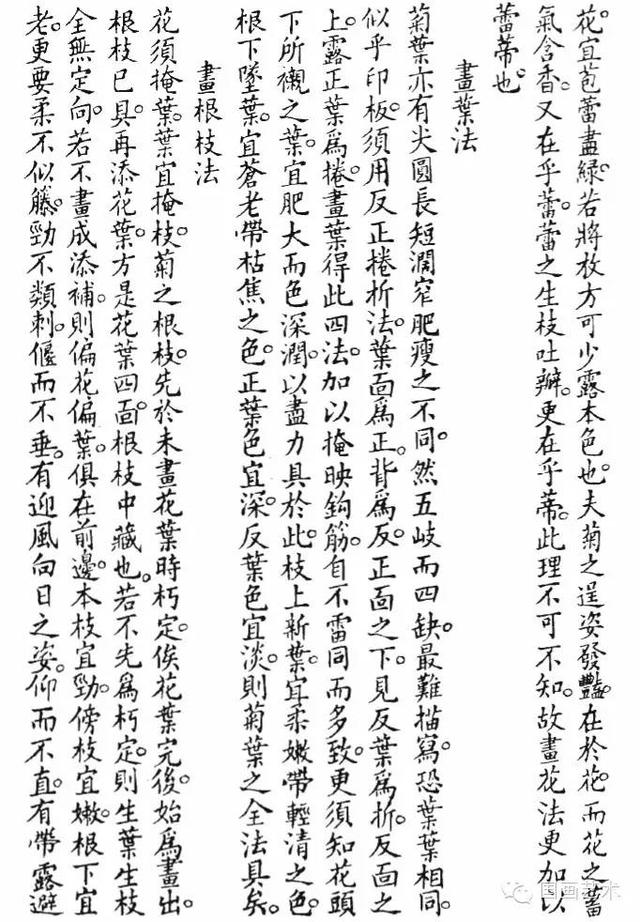 花。宜苞蕾盡綠。若將放方可少露本色也。夫菊之逞姿發豔。在於花。而花之蓄
氣含香。又在乎蕾。蕾之生枝吐瓣。更在乎蒂。此理不可不知。故畫花法更加以
蕾蒂也。
畫葉法
菊葉亦有尖圓長短濶窄肥瘦之不同。然五岐而四缺。最難描寫。恐葉葉相同。
似乎印板。須用反正捲折法。葉面爲正。背爲反。正面之下。見反葉爲折。反面之
上。露正葉爲捲。畫葉得此四法。加以掩映鉤筋。自不雷同而多致。更須知花頭
下所襯之葉。宜肥大而色深潤。以盡力具於此。枝上新葉。宜柔嫩帶輕清之色。
根下墜葉。宜蒼老帶枯焦之色。正葉色宜深。反葉色宜淡。則菊葉之全法具矣。
畫根枝法
花須掩葉。葉宜掩枝。菊之根枝。先於未畫花葉時朽定。俟花葉完後。始爲畫出。
根枝已具。再添花葉。方是花葉四面。根枝中藏也。若不先爲朽定。則生葉生枝
全無定向。若不畫成添補。則偏花偏葉。俱在前邊。本枝宜勁。傍枝宜嫩。根下宜
老。更要柔不似籐。勁不類刺。偃而不垂。有迎風向日之姿。仰而不直。有帶露避
国画艺术